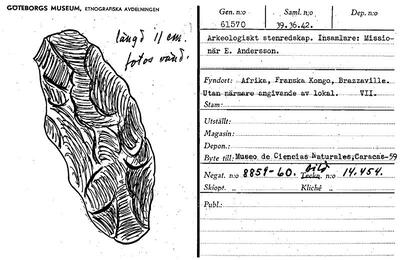 GÖTEBORGS MUSEUM, ETNOGRAFISKA AVDELNINGEN
längd 11 cm.
fotos värd.
Gen. n:o Saml. n:o Dep. n:o
61570 39.36.42.
Arkeologiskt stenredskap. Insamlare: Missio-
när E. Andersson.
Fyndort: Afrika, Franska Kongo, Brazzaville.
Utan närmare angivande av lokal. VII.
Stam:
Utställt:
Magasin:
Depon.:
Byte till: Museo de Ciencias Naturales,Caracas-59
Negat. n:o 8859-60. bild Locka. n:o 14.454.
Skiopt. „ Kliché „
Publ.: